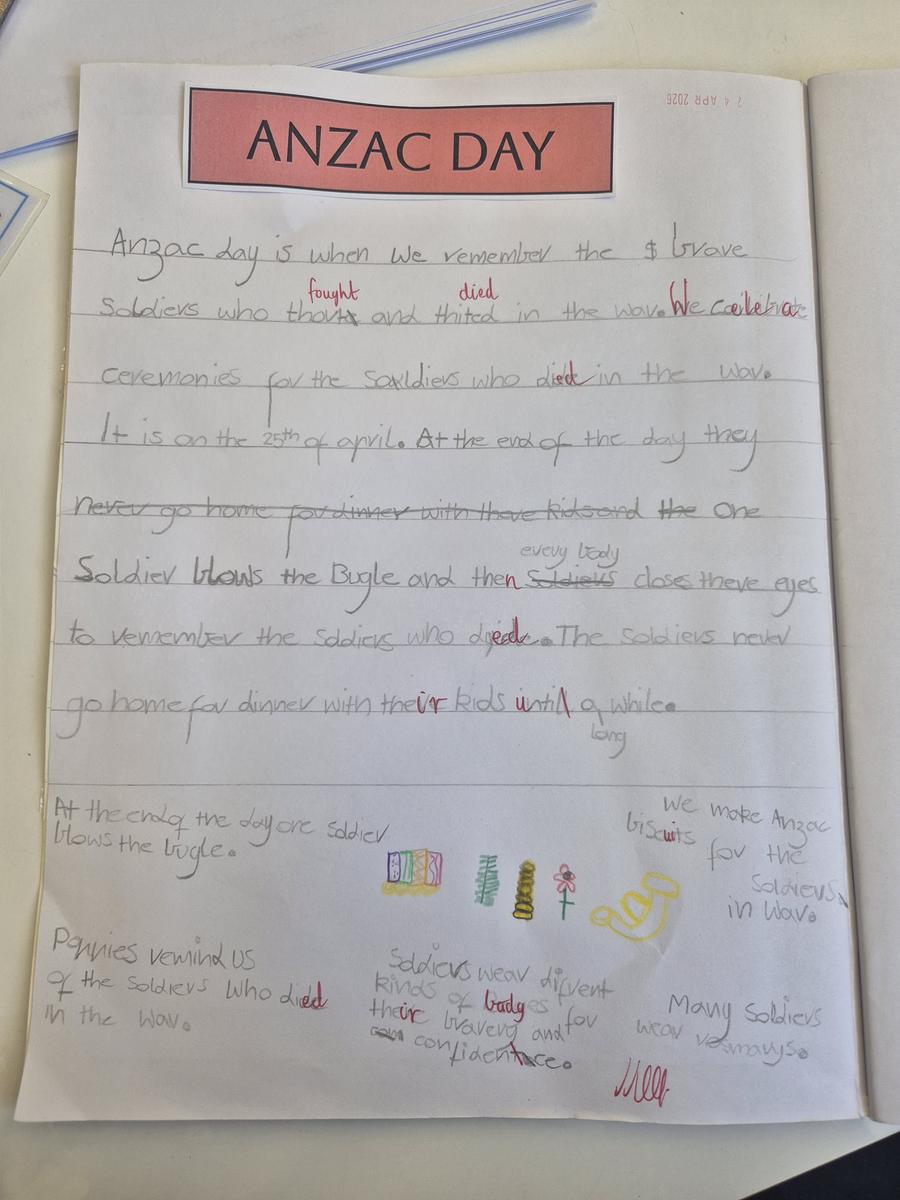 24 APR 2026
ANZAC DAY
Anzac day is when we remember the $ brave
fought died
Soldiers who and thited in the war. We ceilebrate
ceremonies for the soldiers who died in the war.
It is on the 25th of april. At the end of the day they
never go home for dinner with there kids and the one
every body
Soldier blows the Bugle and then Soldiers closes there eyes
to remember the soldiers who died. The soldiers never
go home for dinner with their kids until a while.
long
At the end of the day one soldier
blows the bugle.
We make Anzac
biscuits
for the
Soldiers
in war.
Poppies remind us
of the soldiers who died
in the war.
Soldiers wear difrent
kinds of badges for
their bravery and for
confidence.
Many soldiers
wear rosmarys.